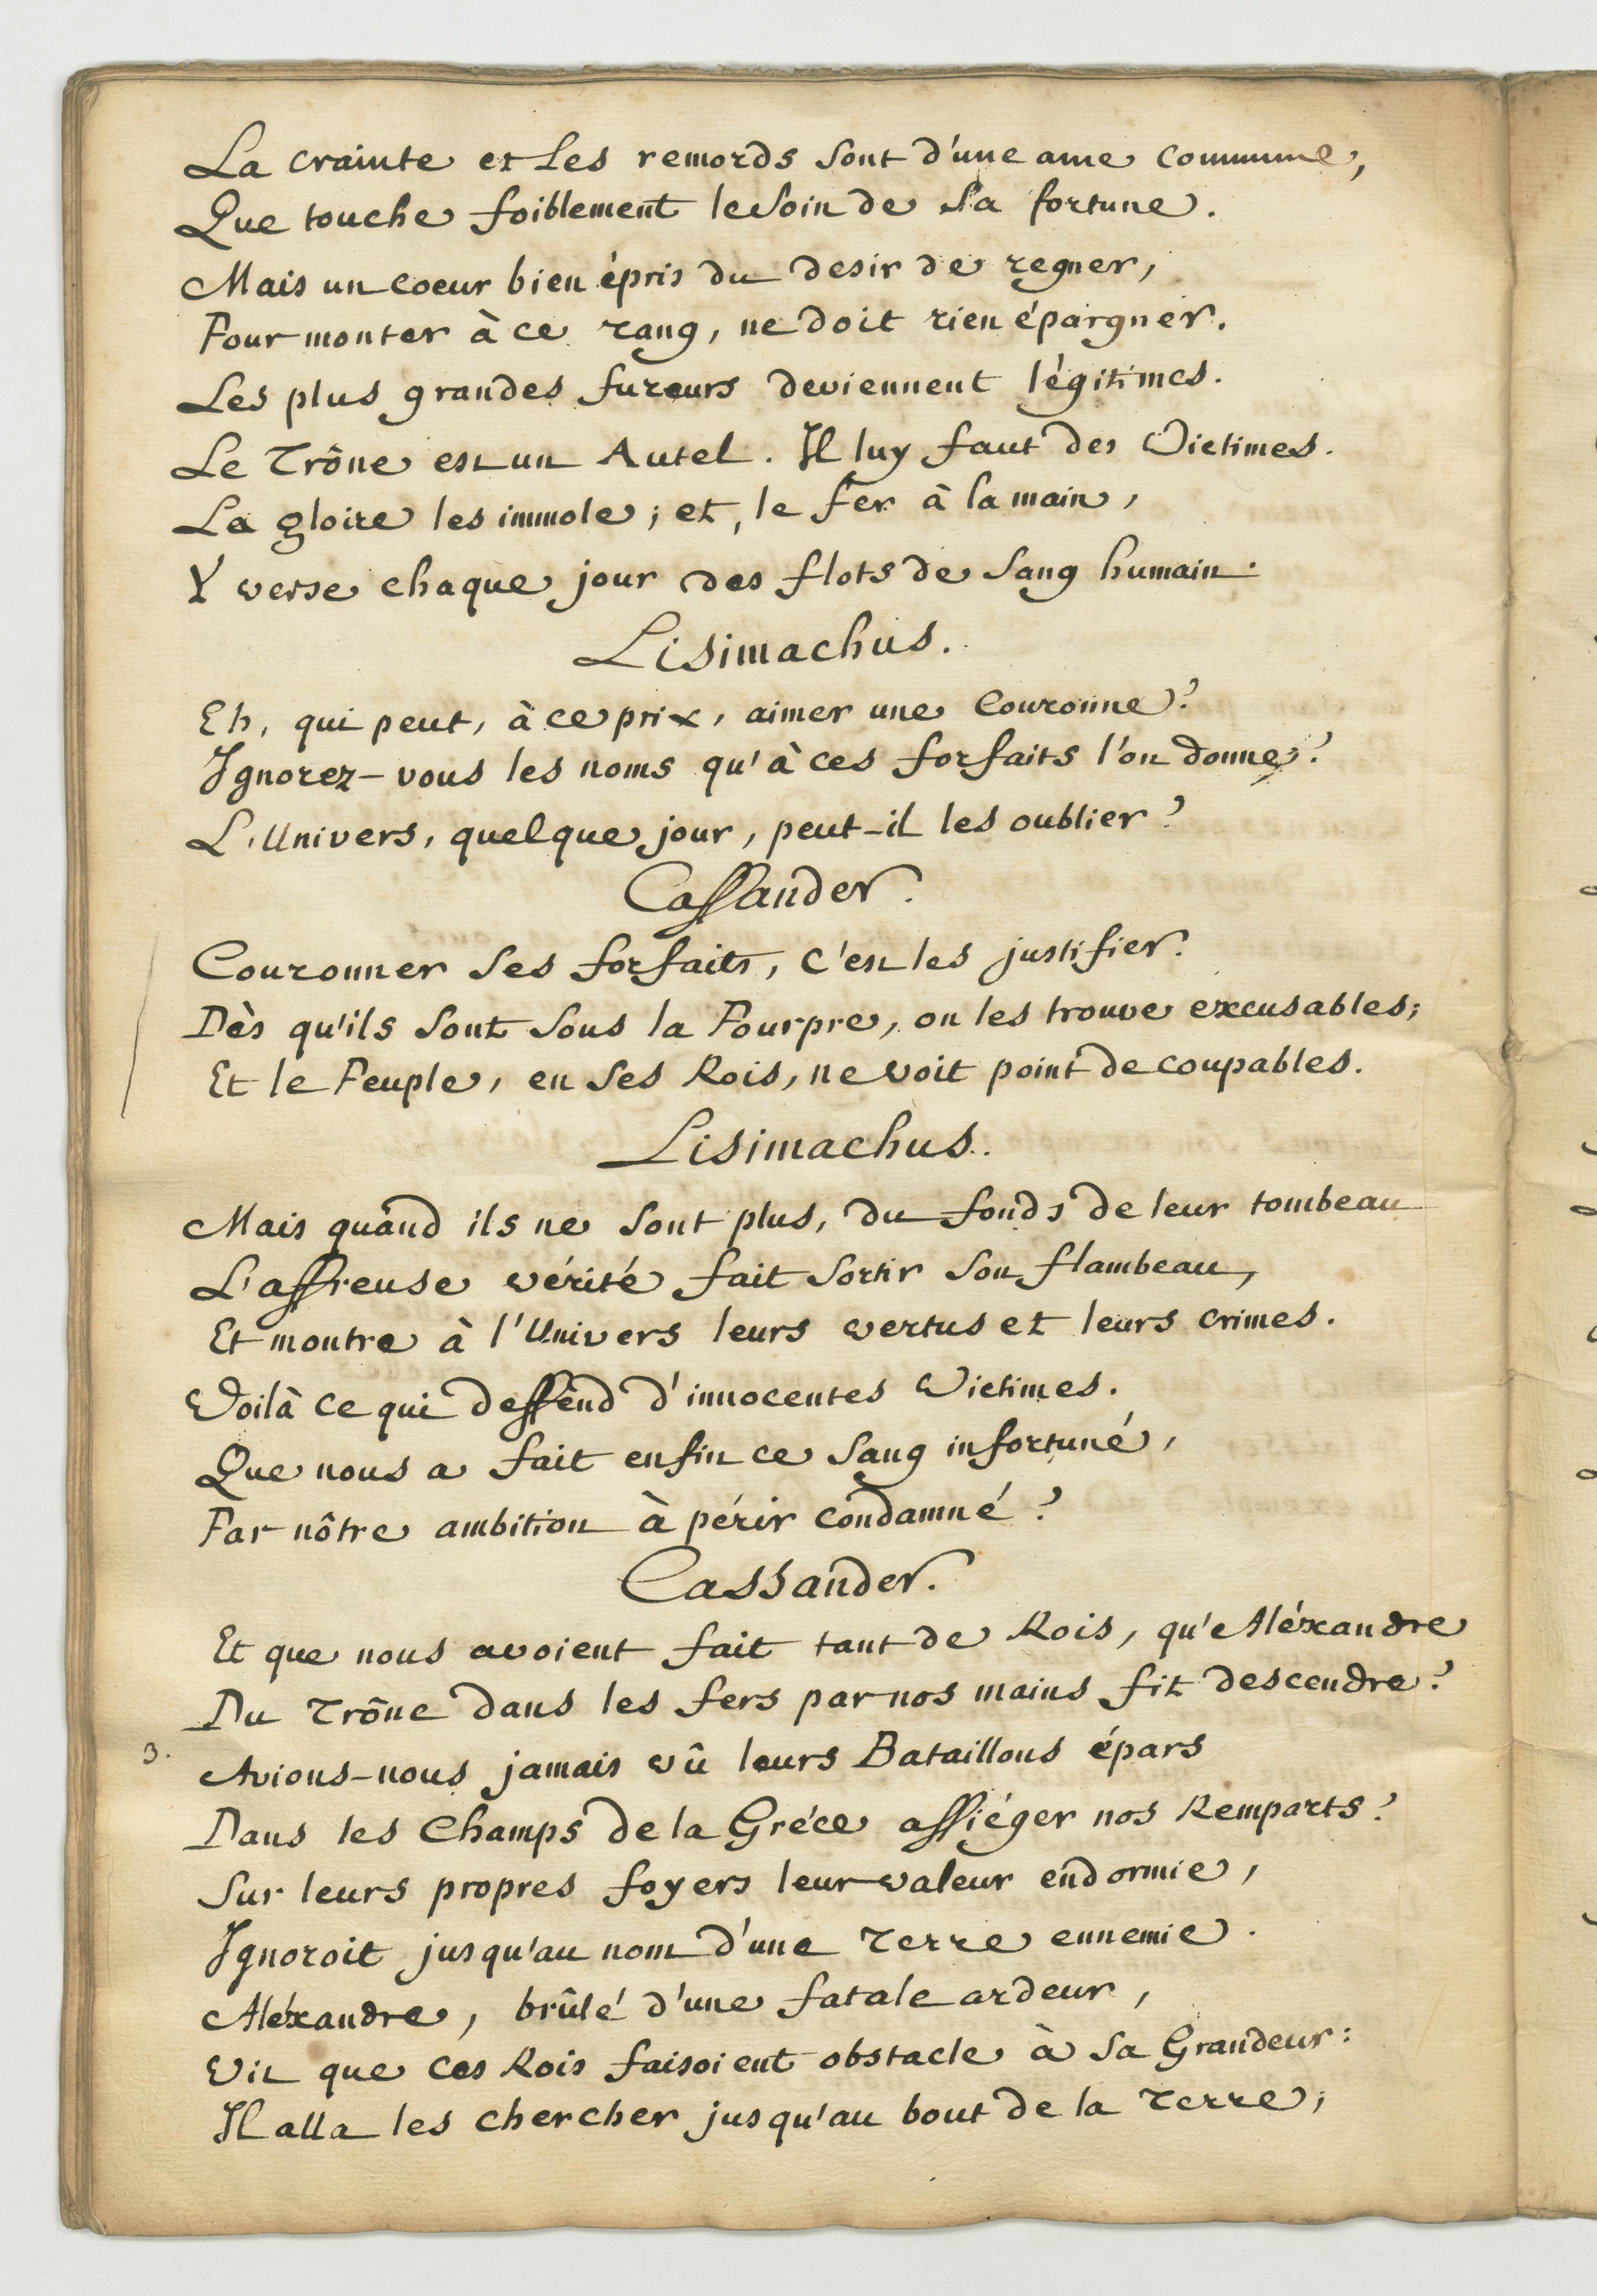 La crainte et les remords sont d'une ame commune,
Que touche foiblement le soin de sa fortune.
Mais un coeur bien épris du desir de regner,
Pour monter à ce rang, ne doit rien épargner.
Les plus grandes fureurs deviennent légitimes.
Le Trône est un Autel. Il luy faut des Victimes.
La gloire les immole; et, le fer à la main,
Y verse chaque jour des flots de sang humain.
Lisimachus.
Eh, qui peut, à ce prix, aimer une Couronne?
Ignorez-vous les noms qu'à ces forfaits l'on donne?
L'Univers, quelque jour, peut-il les oublier?
Cassander.
Couronner ses forfaits, c'est les justifier.
Dès qu'ils sont sous la Pourpre, on les trouve excusables;
Et le Peuple, en ses Rois, ne voit point de coupables.
Lisimachus.
Mais quand ils ne sont plus, du fonds de leur tombeau
L'affreuse vérité fait sortir son flambeau,
Et montre à l'Univers leurs vertus et leurs crimes.
Voilà ce qui deffend d'innocentes Victimes.
Que nous a fait enfin ce sang infortuné,
Par nôtre ambition à périr condamné?
Cassander.
Et que nous avoient fait tant de Rois, qu'Aléxandre
Du Trône dans les fers par nos mains fit descendre?
3. Avions-nous jamais vû leurs Bataillons épars
Dans les Champs de la Gréce assiéger nos Remparts?
Sur leurs propres foyers leur valeur endormie,
Ignoroit jusqu'au nom d'une Terre ennemie.
Aléxandre, brûlé d'une fatale ardeur,
Vit que ces Rois faisoient obstacle à sa Grandeur:
Il alla les chercher jusqu'au bout de la Terre;